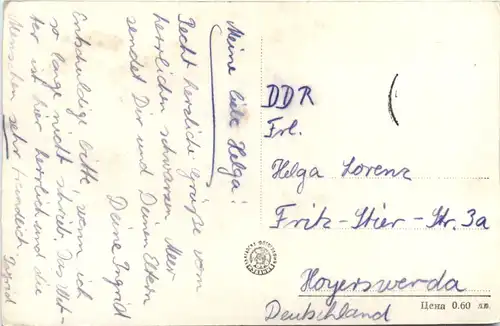 Meine liebe Helga!
Recht herzliche Grüße vom
herrlichen schwarzen Meer
sendet Dir und Deinen Eltern
Deine Ingrid
Entschuldigt bitte, wenn ich
so lange nicht schrieb. Das Wet-
ter ist hier herrlich und die
Menschen sehr freundlich. Ingrid
DDR
Frl.
Helga Lorenz
Fritz-Stier-Str. 3a
Hoyerswerda
Deutschland
Цена 0.60 лв.